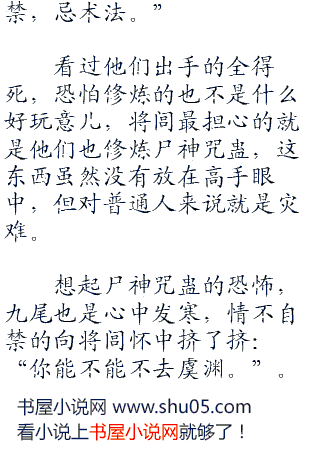 禁，忌术法。”
看过他们出手的全得
死，恐怕修炼的也不是什么
好玩意儿，将闾最担心的就
是他们也修炼尸神咒蛊，这
东西虽然没有放在高手眼
中，但对普通人来说就是灾
难。
想起尸神咒蛊的恐怖，
九尾也是心中发寒，情不自
禁的向将闾怀中挤了挤：
“你能不能不去虞渊。”。
书屋小说网 www.shu05.com
看小说上书屋小说网就够了！